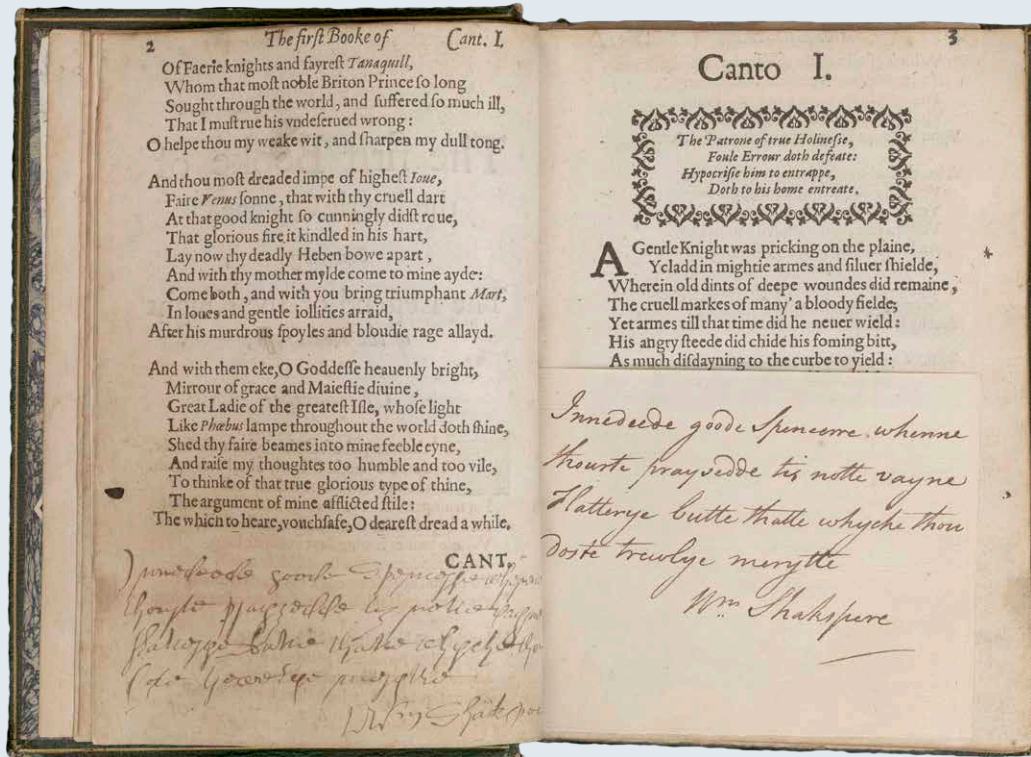 2 The first Booke of Cant. I.
Of Faerie knights and fayrest Tanaquill,
Whom that most noble Briton Prince so long
Sought through the world, and suffered so much ill,
That I must rue his vndeserued wrong:
O helpe thou my weake wit, and sharpen my dull tong.
And thou most dreaded impe of highest Ioue,
Faire Venus sonne, that with thy cruell dart
At that good knight so cunningly didst roue,
That glorious fire it kindled in his hart,
Lay now thy deadly Heben bowe apart,
And with thy mother mylde come to mine ayde:
Come both, and with you bring triumphant Mart,
In loues and gentle iollities arraid,
After his murdrous spoyles and bloudie rage allayd.
And with them eke, O Goddesse heauenly bright,
Mirrour of grace and Maiestie diuine,
Great Ladie of the greatest Isle, whose light
Like Phœbus lampe throughout the world doth shine,
Shed thy faire beames into mine feeble eyne,
And raise my thoughtes too humble and too vile,
To thinke of that true glorious type of thine,
The argument of mine afflicted stile:
The which to heare, vouchsafe, O dearest dread a while.
CANT.
Innedeede goode Spencerre
3
Canto I.
The Patrone of true Holinesse,
Foule Errour doth defeate:
Hypocrisie him to entrappe,
Doth to his home entreate.
A Gentle Knight was pricking on the plaine,
Ycladd in mightie armes and siluer shielde,
Wherein old dints of deepe woundes did remaine,
The cruell markes of many' a bloody fielde;
Yet armes till that time did he neuer wield:
His angry steede did chide his foming bitt,
As much disdayning to the curbe to yield:
Innedeede goode Spencerre whenne
thourte praysedde tis notte vayne
Flatterye butte thatte whyche thou
doste trewlye merytte
Wm Shakspere